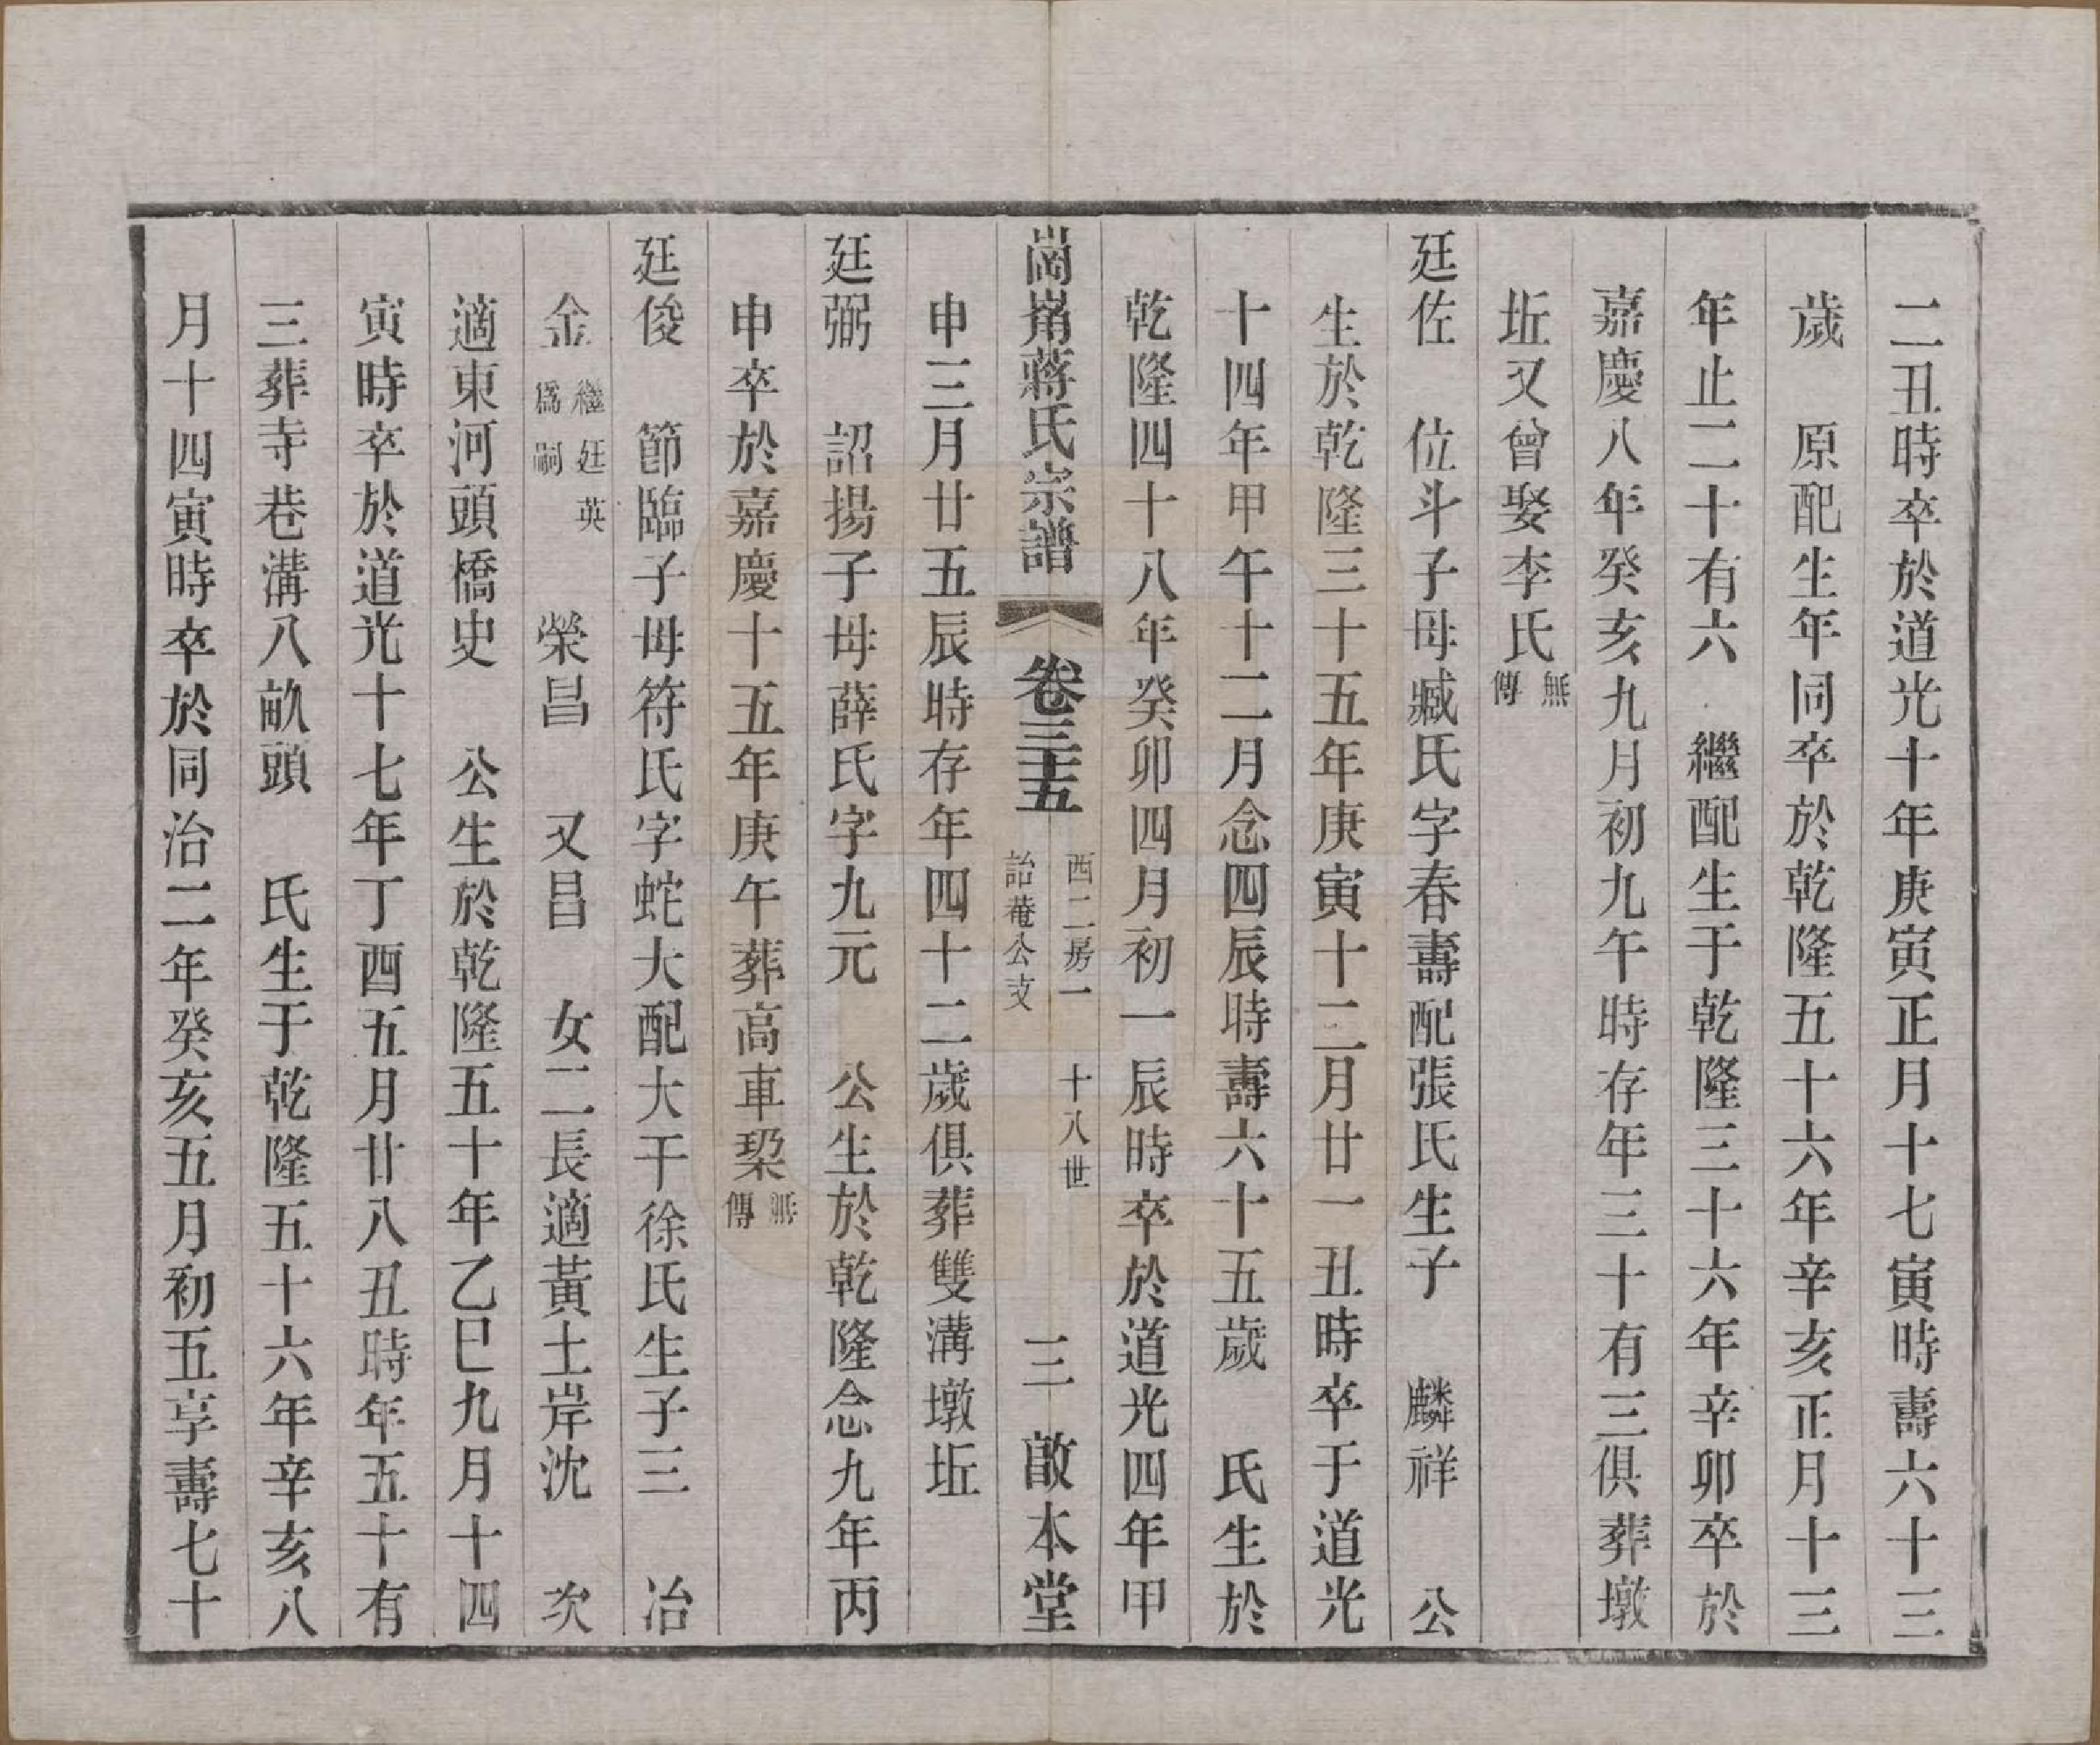 二丑時卒於道光十年庚寅正月十七寅時壽六十三
歲　原配生年同卒於乾隆五十六年辛亥正月十三
年止二十有六　繼配生于乾隆三十六年辛卯卒於
嘉慶八年癸亥九月初九午時存年三十有三俱葬墩
坵又曾娶李氏無傳
廷佐　位斗子母臧氏字春壽配張氏生子　麟祥　公
生於乾隆三十五年庚寅十二月廿一丑時卒于道光
十四年甲午十二月念四辰時壽六十五歲　氏生於
乾隆四十八年癸卯四月初一辰時卒於道光四年甲
崗崩蔣氏宗譜　卷三十五　西二房一詒菴公支　十八世　三　啟本堂
申三月廿五辰時存年四十二歲俱葬雙溝墩坵
廷弼　詔揚子母薛氏字九元　公生於乾隆念九年丙
申卒於嘉慶十五年庚午葬高車梁無傳
廷俊　節臨子母符氏字蛇大配大干徐氏生子三　冶
金繼廷英為嗣　榮昌　又昌　女二長適黃土岸沈　次
適東河頭橋史　公生於乾隆五十年乙巳九月十四
寅時卒於道光十七年丁酉五月廿八丑時年五十有
三葬寺巷溝八畝頭　氏生于乾隆五十六年辛亥八
月十四寅時卒於同治二年癸亥五月初五享壽七十